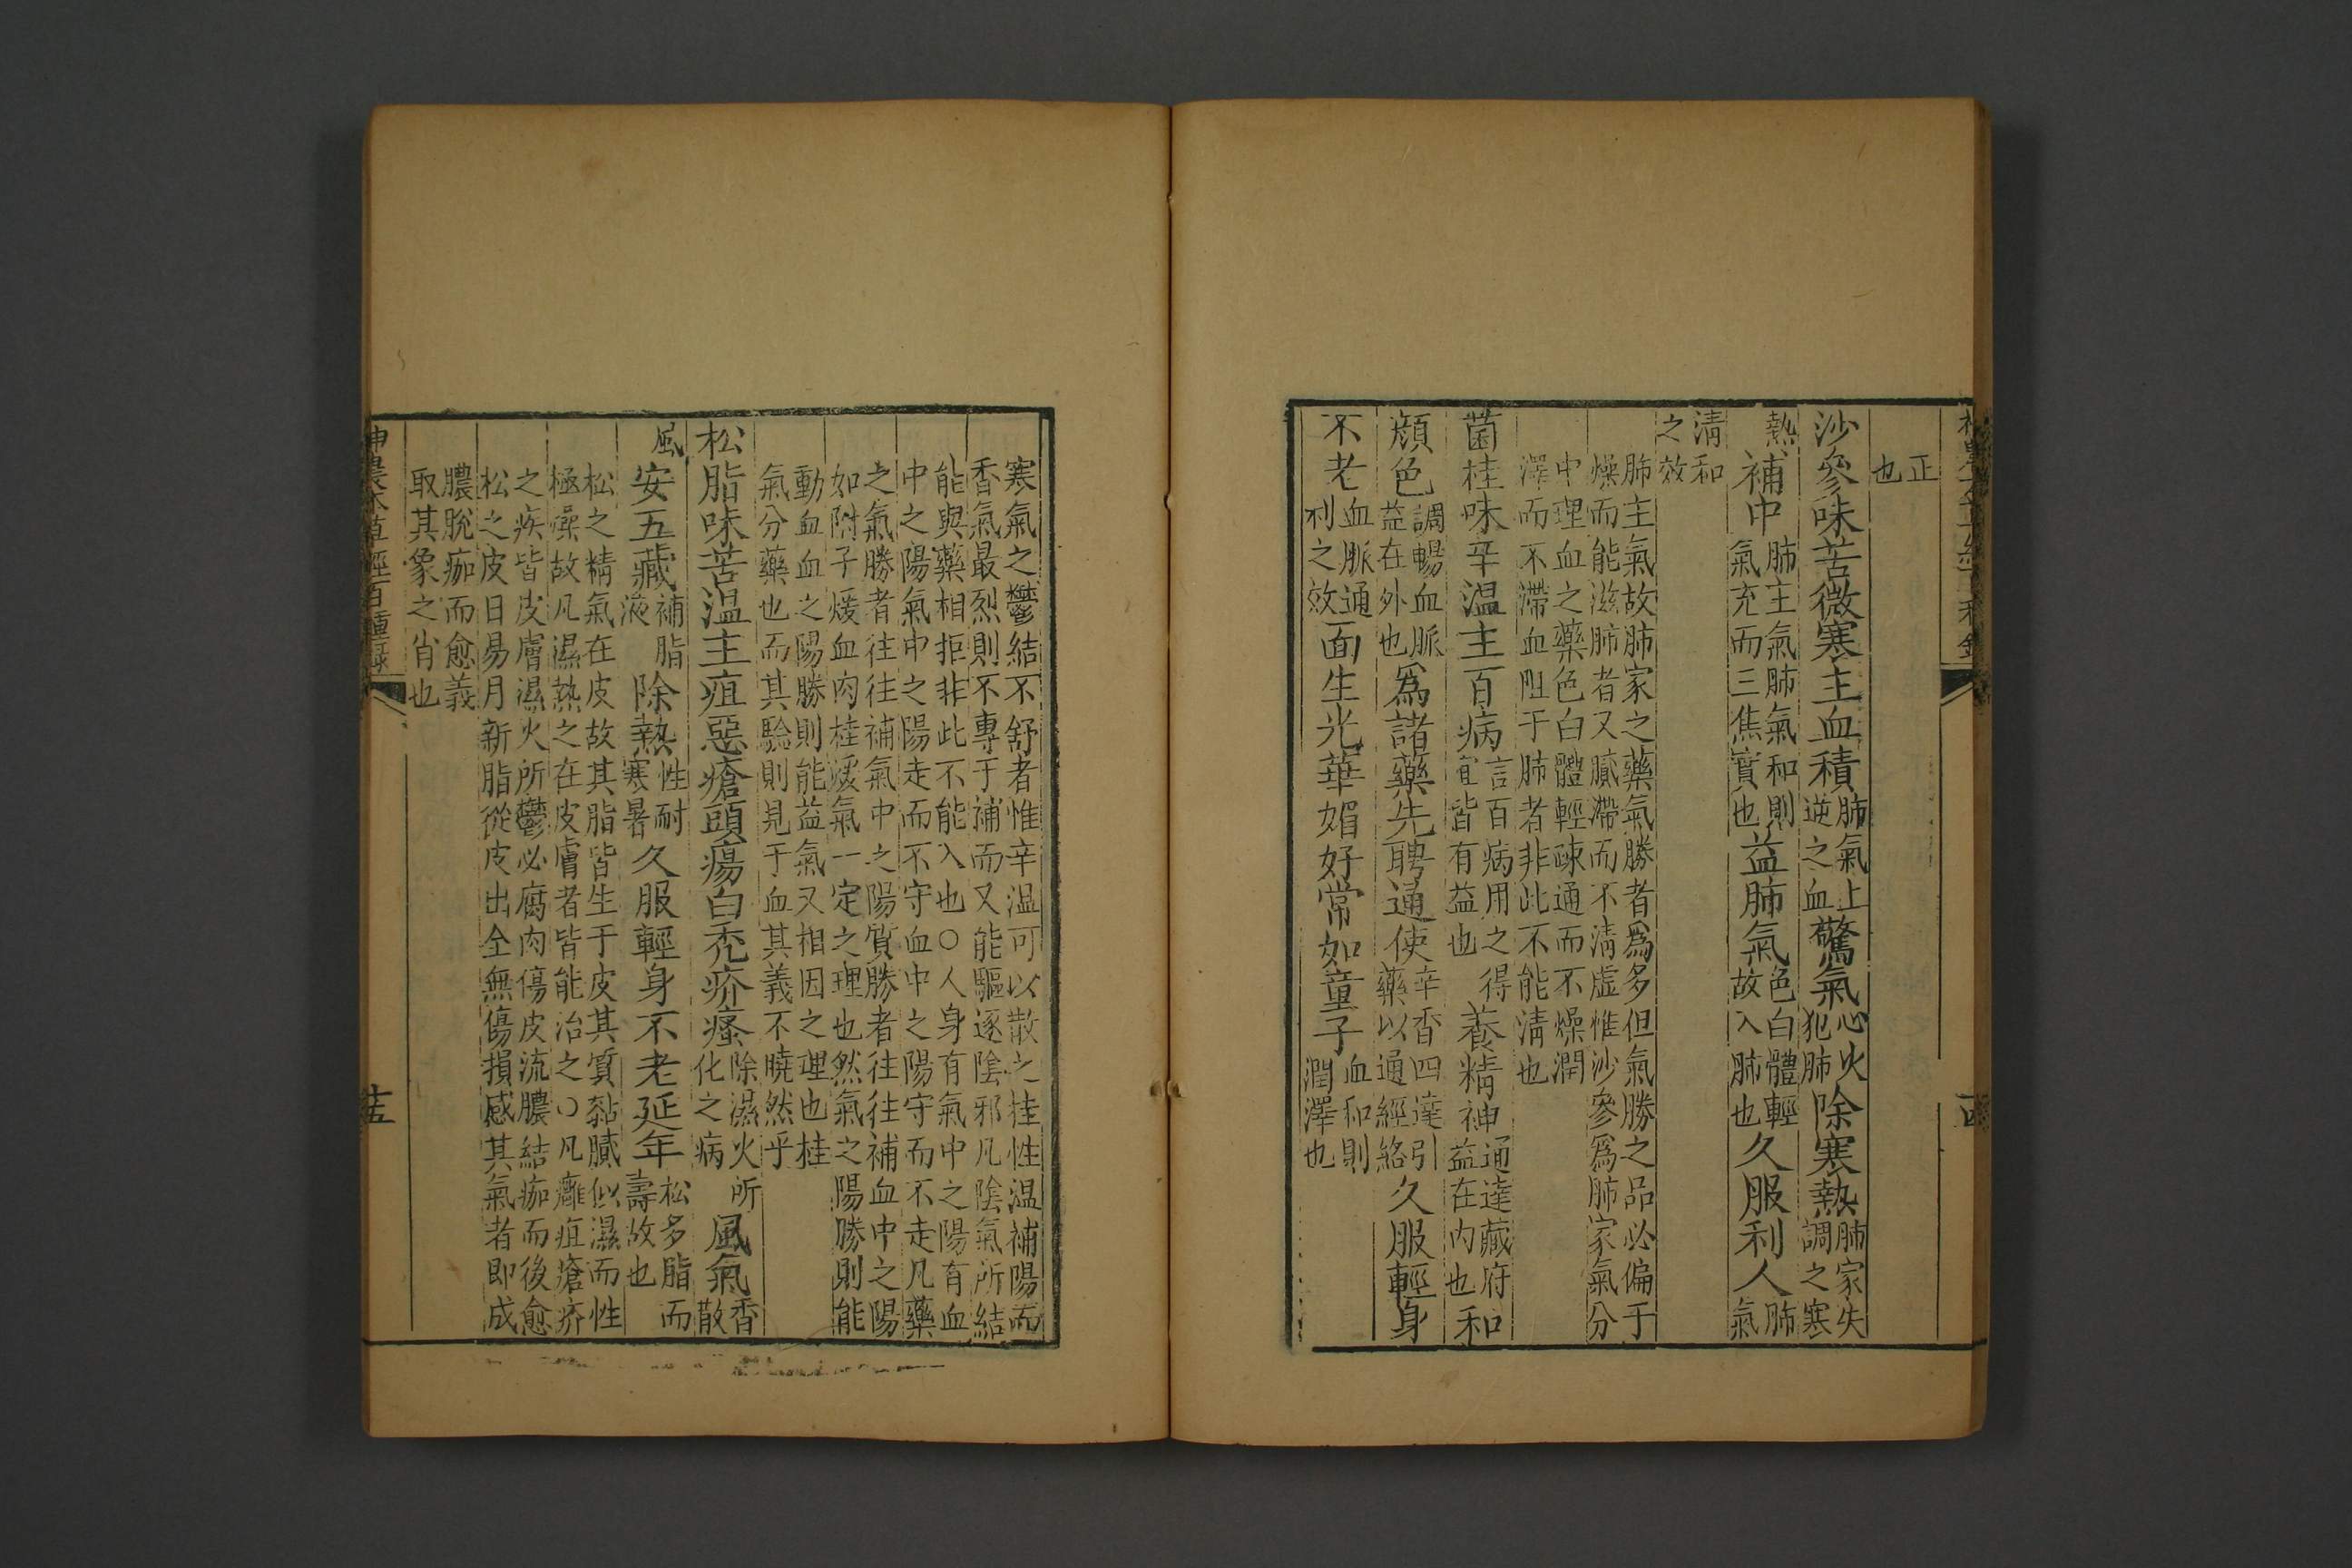 正也
沙參味苦微寒主血積肺氣上逆之血驚氣心火犯肺除寒熱肺家失調之寒
熱補中肺主氣肺氣和則氣充而三焦實也益肺氣色白體輕故入肺也久服利人肺氣
清和之效
肺主氣故肺家之藥氣勝者爲多但氣勝之品必偏于
燥而能滋肺者又膩滯而不清虛惟沙參爲肺家氣分
中理血之藥色白體輕疎通而不燥潤
澤而不滯血阻于肺者非此不能清也
菌桂味辛温主百病言百病用之得宜皆有益也養精神通達藏府益在内也和
顔色調暢血脈益在外也爲諸藥先聘通使辛香四達引藥以通經絡久服輕身
不老血脈通利之效面生光華媚好常如童子血和則潤澤也
寒氣之鬱結不舒者惟辛温可以散之桂性温補陽而
香氣最烈則不專于補而又能驅逐陰邪凡陰氣所結
能與藥相拒非此不能入也○人身有氣中之陽有血
中之陽氣中之陽走而不守血中之陽守而不走凡藥
之氣勝者往往補氣中之陽質勝者往往補血中之陽
如附子煖血肉桂煖氣一定之理也然氣之陽勝則能
動血血之陽勝則能益氣又相因之理也桂
氣分藥也而其驗則見于血其義不曉然乎
松脂味苦温主疽惡瘡頭瘍白禿疥瘙除濕火所化之病風氣香散
風安五藏補脂液除熱性耐寒暑久服輕身不老延年松多脂而壽故也
松之精氣在皮故其脂皆生于皮其質黏膩似濕而性
極燥故凡濕熱之在皮膚者皆能治之○凡癰疽瘡疥
之疾皆皮膚濕火所鬱必腐肉傷皮流膿結痂而後愈
松之皮日易月新脂從皮出全無傷損感其氣者即成
膿脫痂而愈義
取其象之肖也
神農本草經百種錄
十五